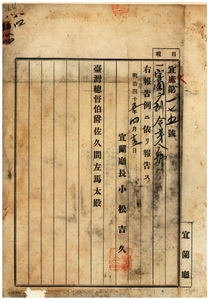 宜庶第一七五號
目報
一宜蘭廳令第八號
右報告例ニ依リ報告ス
明治四十五年四月十五日
宜蘭廳長小松吉久
臺灣總督伯爵佐久間左馬太殿
宜蘭廳